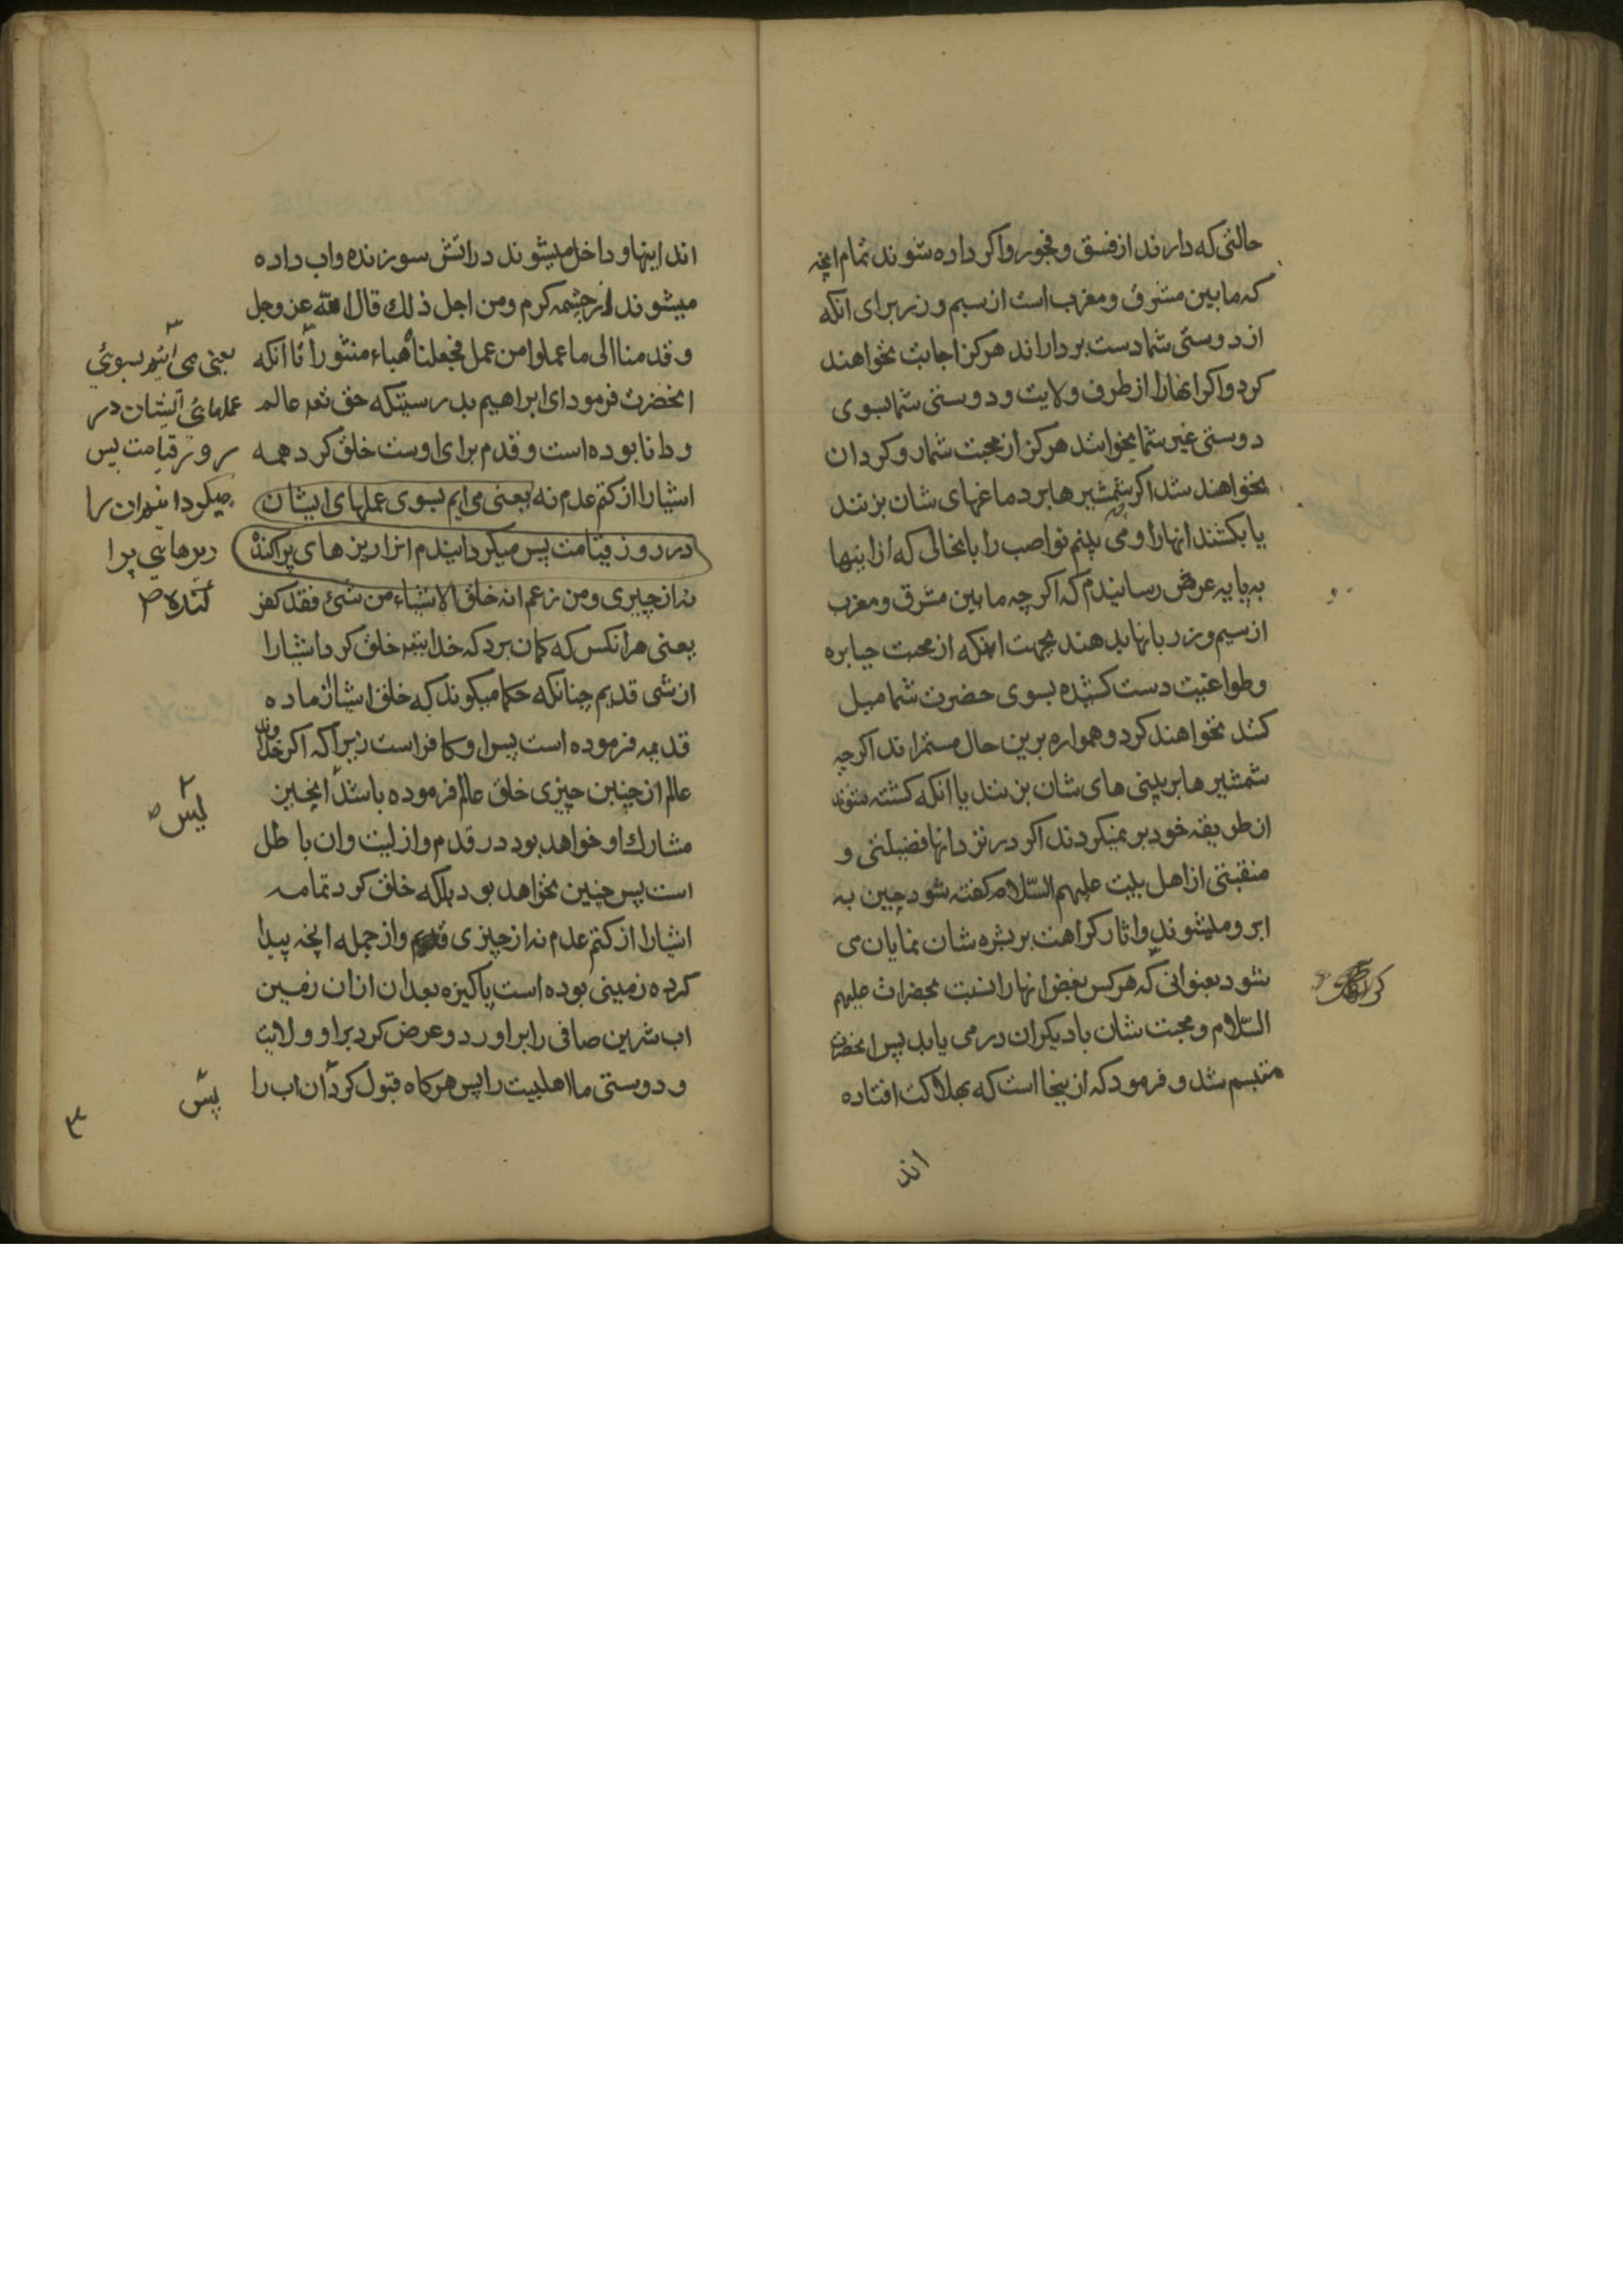 حالتی که دارند از فسق و فجور و اکر داده شوند تمام انچه
که مابین مشرق و مغرب است از سیم و زر برای انکه
از دوستی شما دست بردارند هرکز اجابت نخواهند
کرد و اکر انها را از طرف ولایت و دوستی شما بسوی
دوستی غیر شما بخوانند هرکز از محبت شما رو کردان
نخواهند شد اکر شمشیرها بر دماغهای شان بزنند
یا بکشند انها را و می بینم نواصب را بانحالی که از اینها
به پایه عرض رسانیدم که اکرچه مابین مشرق و مغرب
از سیم و زر بانها بدهند بجهت اینکه از محبت جبابره
و طواغیت دست کشیده بسوی حضرت شما میل
کنند نخواهند کرد و همواره برین حال مستمر اند اکرچه
شمشیرها بر بینی های شان بزنند یا انکه کشته شوند
از طریقه خود بر نمیکردند اکر در نزد انها فضیلتی و
منقبتی از اهل بیت علیهم السّلام کفته شود چین به
ابرو میشوند و اثار کراهت بر بشره شان نمایان می
شود بعنوانی که هر کس بغض انها را نسبت بحضرات علیهم
السّلام و محبت شان با دیکران در می یابد پس انحضرت
متبسم شد و فرمود که از ینجا است که بهلاکت افتاده
اند
اند اینها و داخل میشوند در اتش سوزنده و اب داده
میشوند از چشمه کرم و من اجل ذلك قال الله عز وجل
و قدمنا الی ما عملوا من عمل فجعلناه هباء منثورا تا انکه
انحضرت فرمود ای ابراهیم بدرستیکه حق تعه عالم
و دانا بوده است و قدم برای اوست خلق کرد همه
اشیا را از کتم عدم نه یعنی می ایم بسوی عملهای ایشان
در روز قیامت پس میکردانیدم انرا ریزهای پراکنده
نه از چیزی و من زعم انه خلق الاشیاء من شئ فقد کفر
یعنی هر انکس که کمان برد که خدایتعه خلق کرد اشیا را
از شی قدیم چنانکه حکما میکوند که خلق اشیا از ماده
قدیمه فرموده است پس او کافر است زیرا که اکر خداوند
عالم از چنین چیزی خلق عالم فرموده باشد انچنین
مشارك او خواهد بود در قدم و ازلیت و ان باطل
است پس چنین نخواهد بود بلکه خلق کرد تمامه
اشیا را از کتم عدم نه از چیزی قدیم و از جمله انچه پیدا
کرده زمینی بوده است پاکیزه بعد ان ازان زمین
اب شرین صافی را براورد و عرض کرد بر او ولایت
و دوستی ما اهلبیت را پس هرکاه قبول کرد ان اب را
یعنی می ائیم بسوئی
عملهائی ایشان در
روز قیامت پس
میکردانیم ان را
ریزهایی پرا
کنده ۳
پس
پس